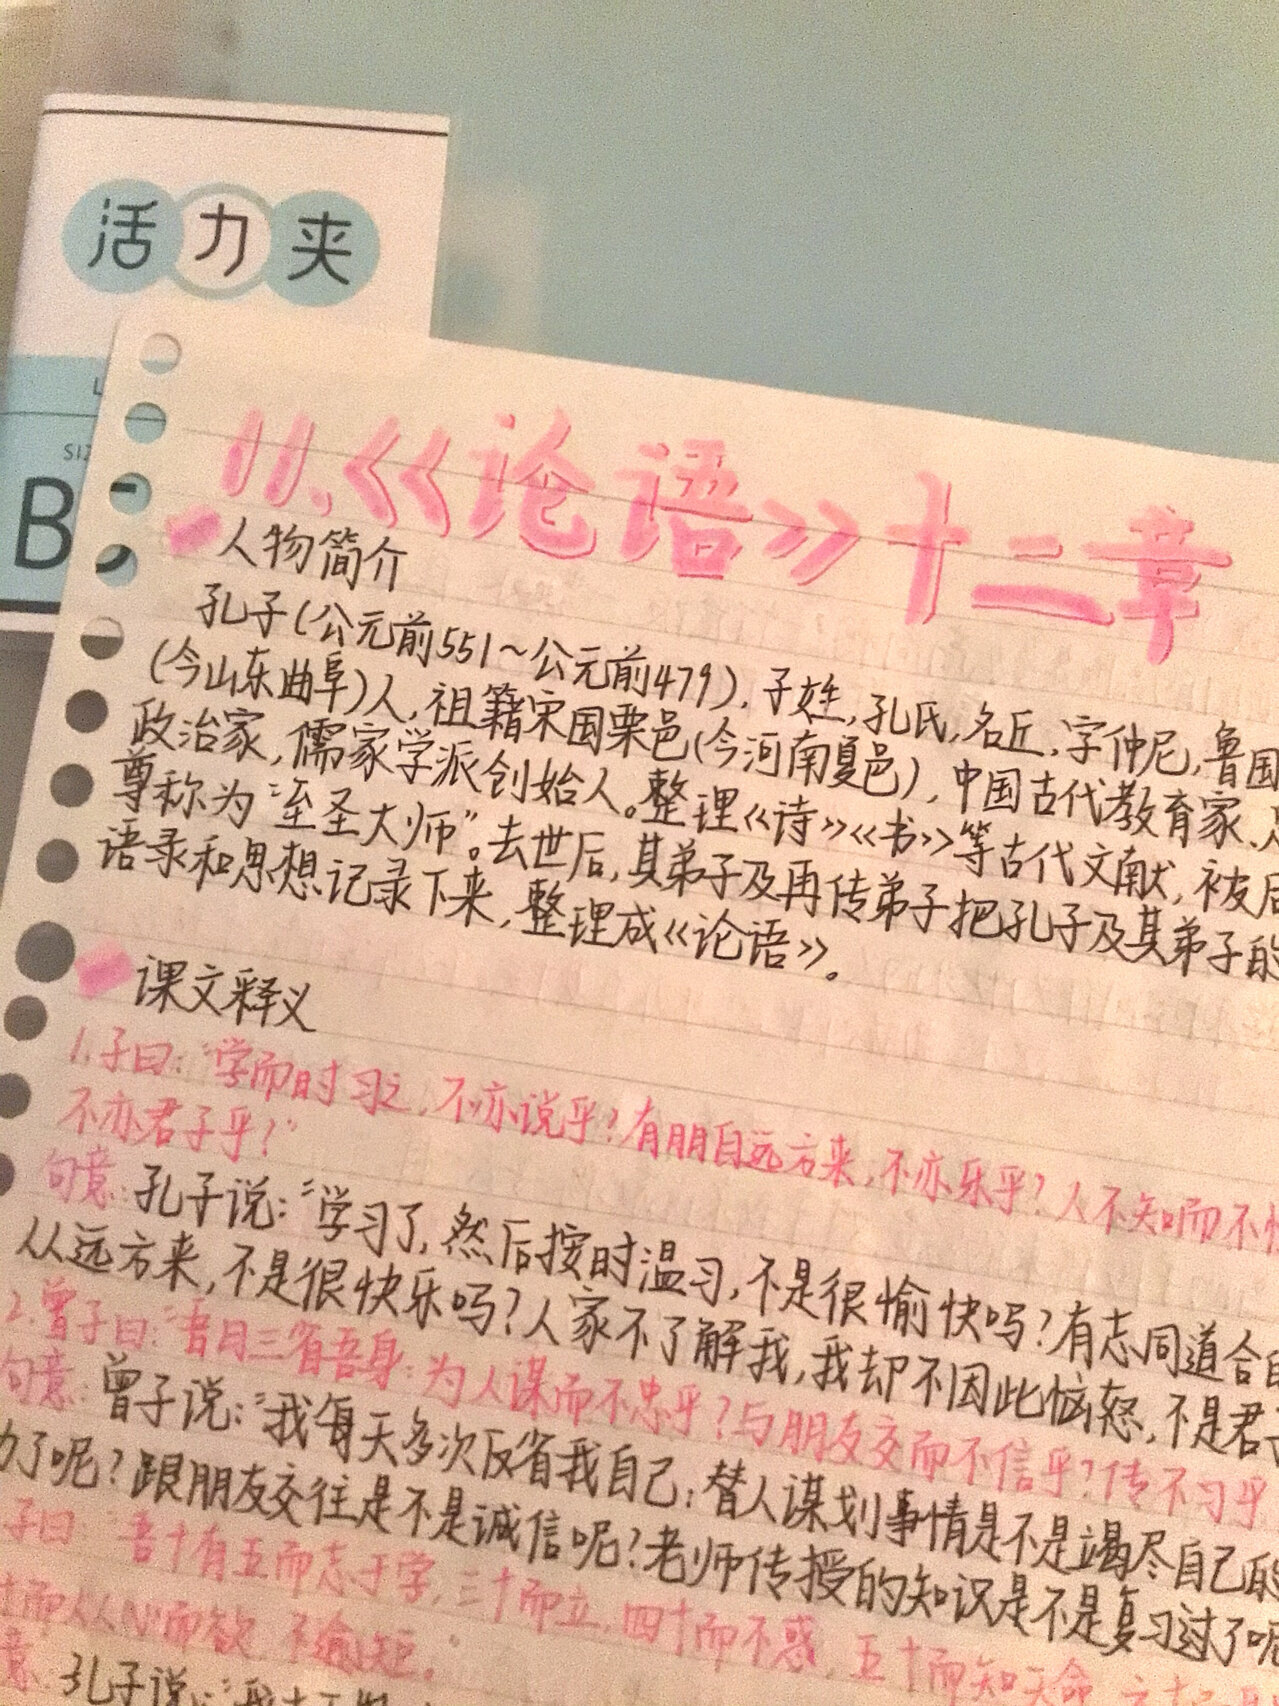 活力夹
B5
11.《论语》十二章
人物简介
孔子(公元前551~公元前479),子姓,孔氏,名丘,字仲尼,鲁国
(今山东曲阜)人,祖籍宋国栗邑(今河南夏邑),中国古代教育家、
政治家,儒家学派创始人。整理《诗》《书》等古代文献,被后
尊称为“至圣大师”。去世后,其弟子及再传弟子把孔子及其弟子的
语录和思想记录下来,整理成《论语》。
课文释义
1.子曰:“学而时习之,不亦说乎?有朋自远方来,不亦乐乎?人不知而不
不亦君子乎?”
句意:孔子说:“学习了,然后按时温习,不是很愉快吗?有志同道合
从远方来,不是很快乐吗?人家不了解我,我却不因此恼怒,不是君子
2.曾子曰:“吾日三省吾身:为人谋而不忠乎?与朋友交而不信乎?传不习乎
句意:曾子说:“我每天多次反省我自己:替人谋划事情是不是竭尽自己的
力了呢?跟朋友交往是不是诚信呢?老师传授的知识是不是复习过了呢
子曰 吾十有五而志于学,三十而立,四十而不惑,五十而知天命,六十
十而从心而欲 不逾矩。”
意:孔子说:“我